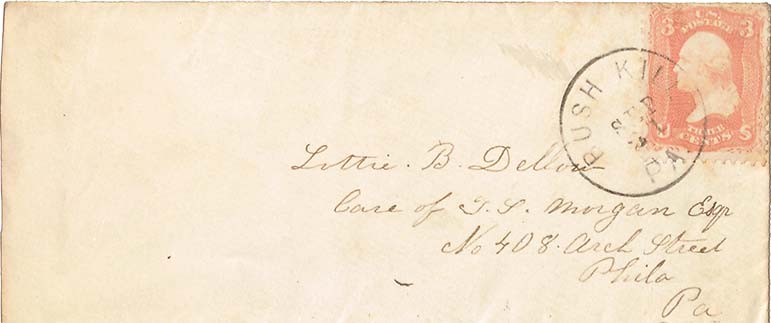 U.S.
POSTAGE
3 3
THREE
CENTS
U S
RUSH KILL
PA.
Lottie. B.
Care of T. S. Morgan Esqr
No 408. Arch Street
Phila
Pa